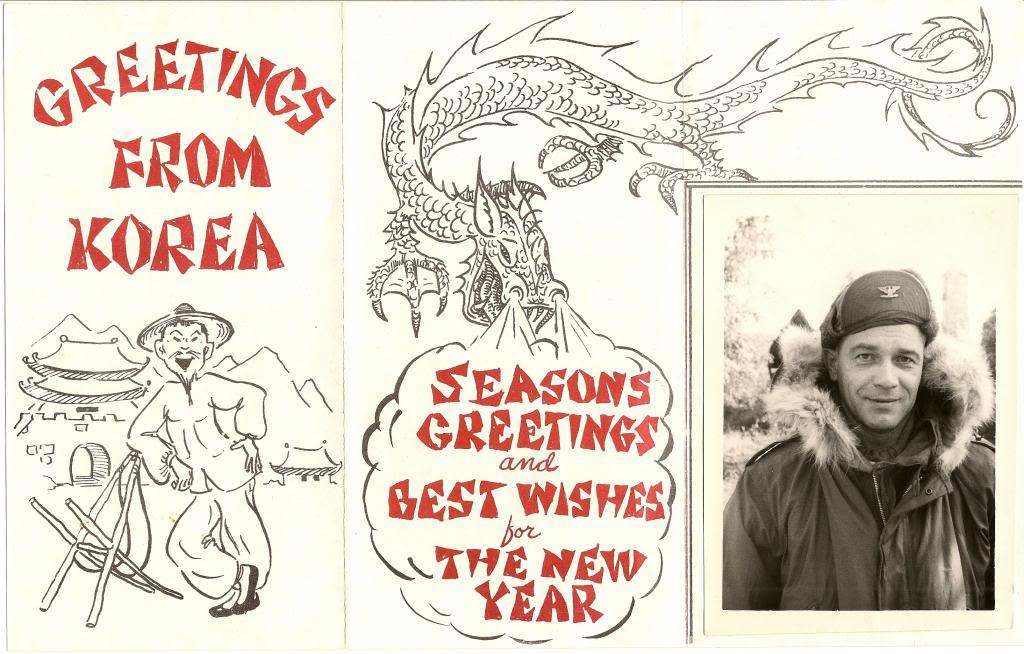 GREETINGS
FROM
KOREA
SEASONS
GREETINGS
and
BEST WISHES
for
THE NEW
YEAR